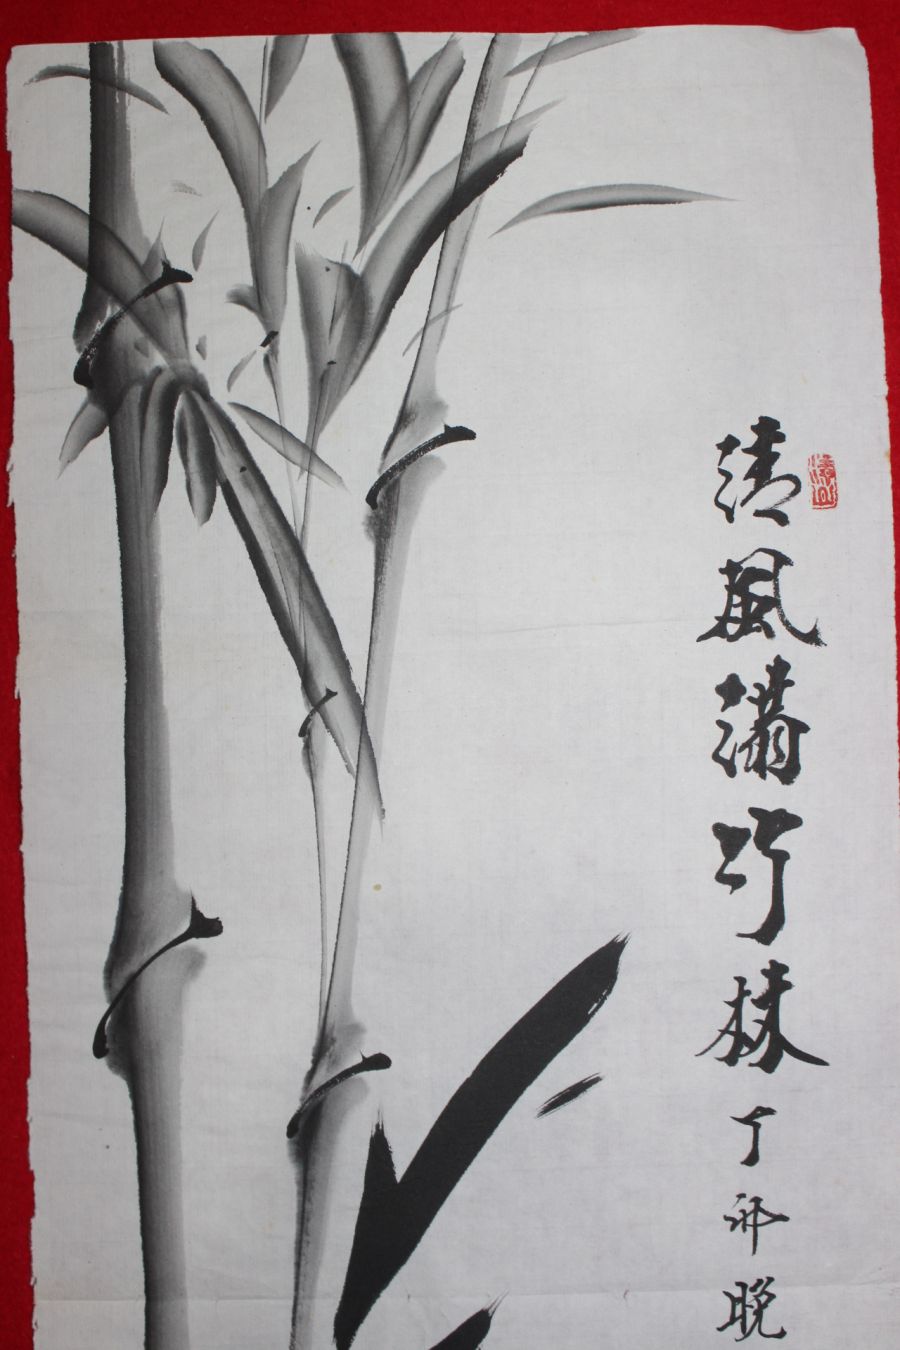 清風滿竹林 丁卯晚